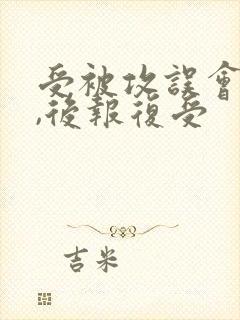 受被攻誤會
,後報復受
吉米